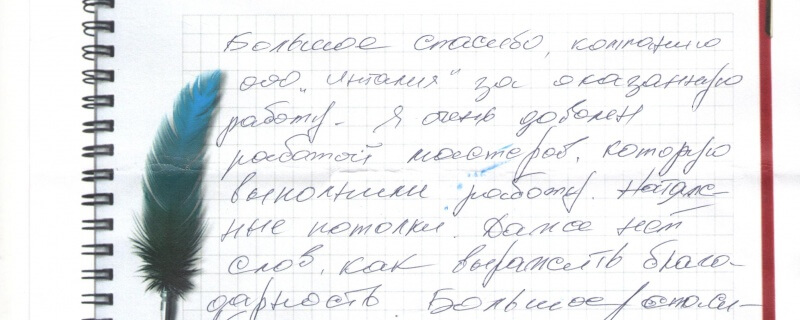 Большое спасибо, компанию
ООО "Анталия" за оказанную
работу. Я очень доволен
работой мастеров, которую
выполнили работу. Натяж-
ные потолки. Даже нет
слов, как выражать благо-
дарность. Большое спаси-